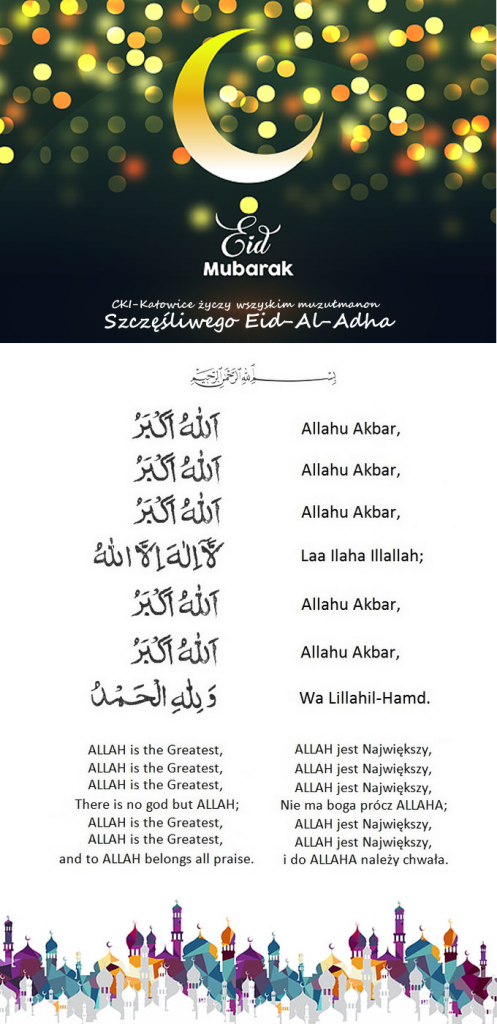 Eid
Mubarak
CKI-Katowice życzy wszyskim muzułmanon
Szczęśliwego Eid-Al-Adha
بِسْمِ اللهِ الرَّحْمٰنِ الرَّحِيْمِ
اَللّٰهُ اَكْبَرُ Allahu Akbar,
اَللّٰهُ اَكْبَرُ Allahu Akbar,
اَللّٰهُ اَكْبَرُ Allahu Akbar,
لَآ اِلٰهَ اِلَّا اللّٰهُ Laa Ilaha Illallah;
اَللّٰهُ اَكْبَرُ Allahu Akbar,
اَللّٰهُ اَكْبَرُ Allahu Akbar,
وَ لِلّٰهِ الْحَمْدُ Wa Lillahil-Hamd.
ALLAH is the Greatest,
ALLAH is the Greatest,
ALLAH is the Greatest,
There is no god but ALLAH;
ALLAH is the Greatest,
ALLAH is the Greatest,
and to ALLAH belongs all praise.
ALLAH jest Największy,
ALLAH jest Największy,
ALLAH jest Największy,
Nie ma boga prócz ALLAHA;
ALLAH jest Największy,
ALLAH jest Największy,
i do ALLAHA należy chwała.